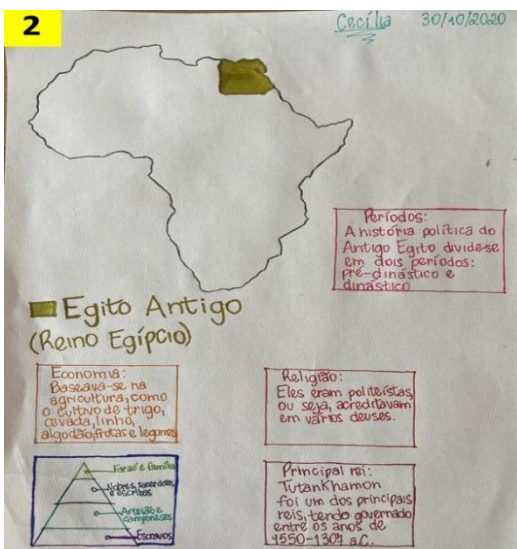 2
Cecília 30/10/2020
Períodos:
A história política do
Antigo Egito divide-se
em dois períodos:
pré-dinástico e
dinástico
Egito Antigo
(Reino Egípcio)
Economia:
Baseava-se na
agricultura, como
o cultivo de trigo,
cevada, linho,
algodão, frutas e legumes
Religião:
Eles eram politeístas,
ou seja, acreditavam
em vários deuses.
Faraó e família
Nobres, sacerdotes
e escribas
Artesão e
camponeses
Escravos
Principal rei:
Tutankhamon
foi um dos principais
reis, tendo governado
entre os anos de
1550-1307 a.C.